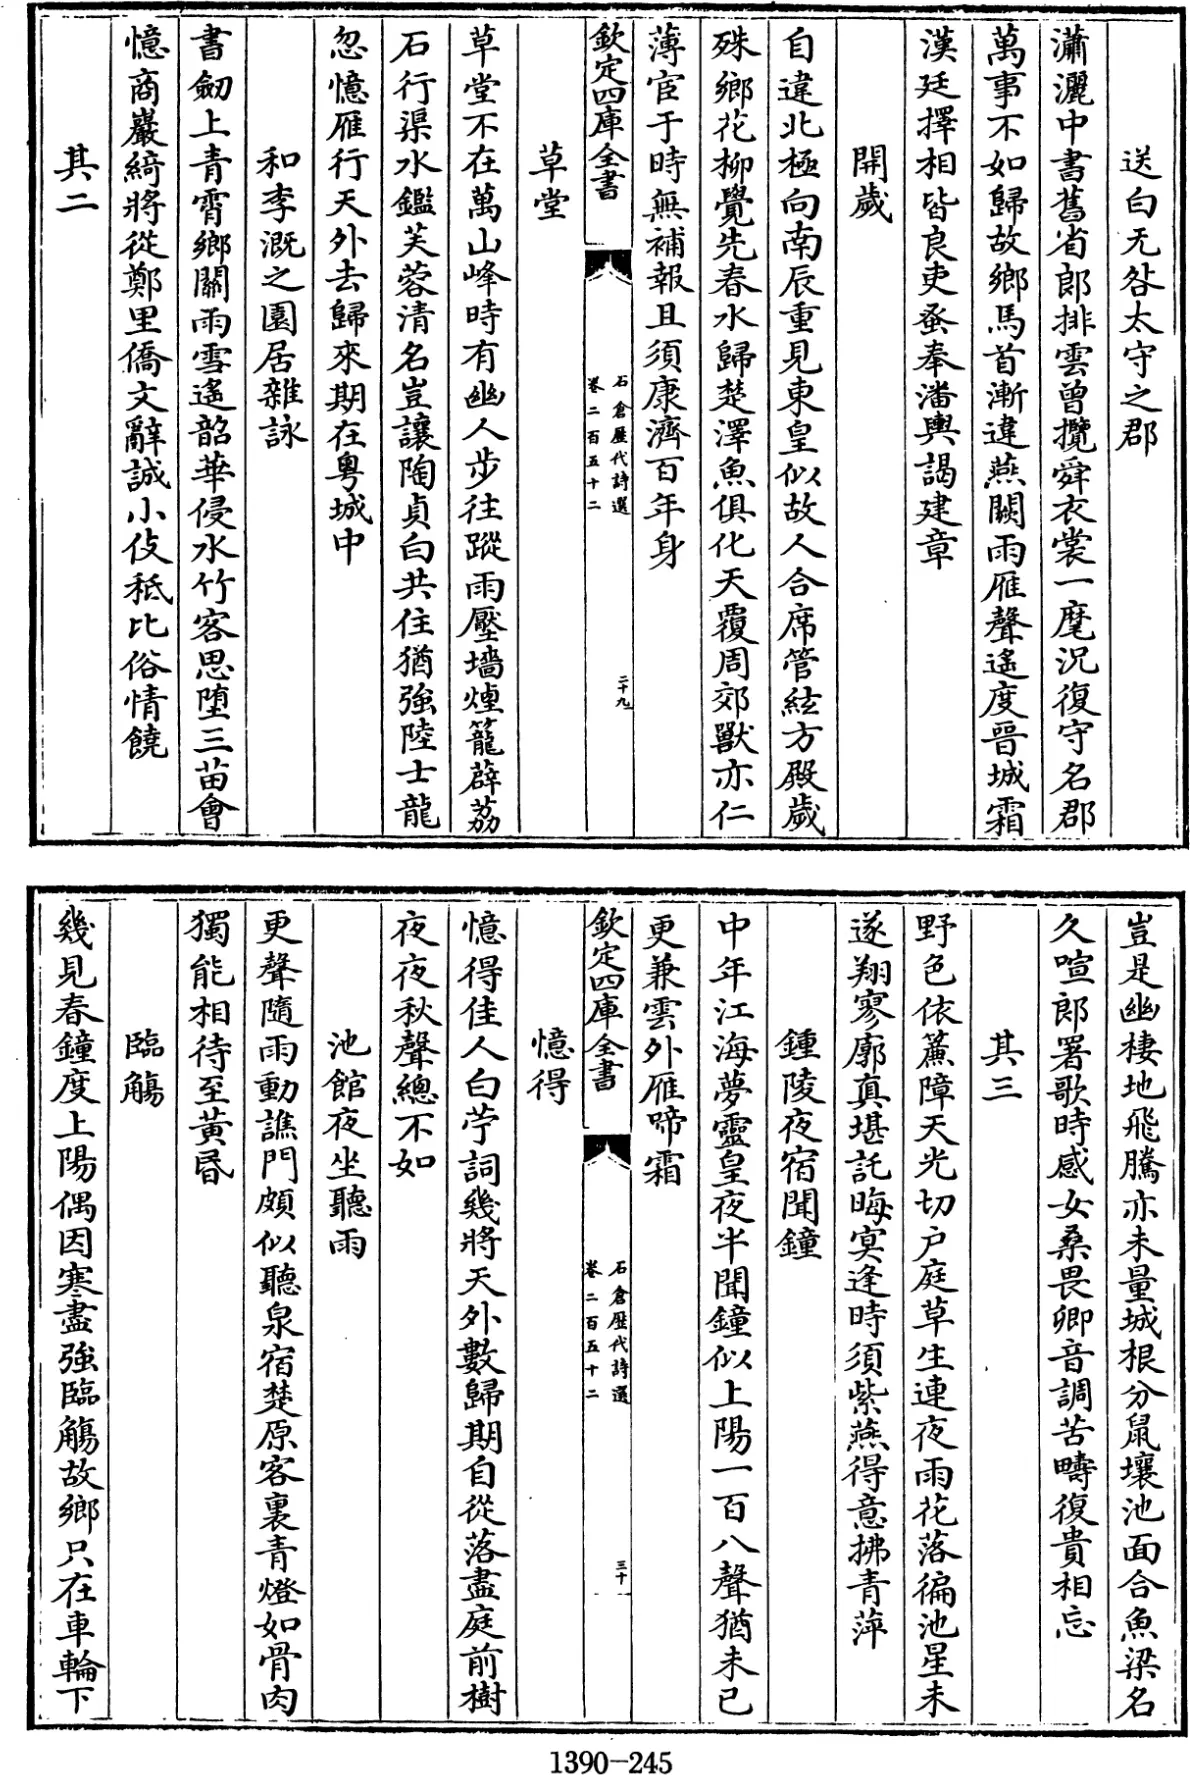 送白无咎太守之郡
瀟灑中書舊省郎排雲曾攬舜衣裳一麾況復守名郡
萬事不如歸故鄉馬首漸違燕闕雨雁聲遙度晉城霜
漢廷擇相皆良吏蚤奉潘輿謁建章
開歲
自違北極向南辰重見東皇似故人合席管絃方殿歲
殊鄉花柳覺先春水歸楚澤魚俱化天覆周郊獸亦仁
薄宦于時無補報且須康濟百年身
欽定四庫全書
石倉歷代詩選
卷二百五十二
二十九
草堂
草堂不在萬山峰時有幽人步往蹤雨壓墻煙籠薜荔
石行渠水鑑芙蓉清名豈讓陶貞白共住猶強陸士龍
忽憶雁行天外去歸來期在粵城中
和李溉之園居雜詠
書劒上青霄鄉關雨雪遙韶華侵水竹客思墮三苗會
憶商巖綺將從鄭里僑文辭誠小伎秪比俗情饒
其二
豈是幽棲地飛騰亦未量城根分鼠壤池面合魚梁名
久喧郎署歌時感女桑畏卿音調苦疇復貴相忘
其三
野色依簾障天光切户庭草生連夜雨花落徧池星未
遂翔寥廓真堪託晦冥逢時須紫燕得意拂青萍
鍾陵夜宿聞鐘
中年江海夢靈皇夜半聞鐘似上陽一百八聲猶未已
更兼雲外雁啼霜
欽定四庫全書
石倉歷代詩選
卷二百五十二
三十
憶得
憶得佳人白苧詞幾將天外數歸期自從落盡庭前樹
夜夜秋聲總不如
池館夜坐聽雨
更聲隨雨動譙門頗似聽泉宿楚原客裏青燈如骨肉
獨能相待至黃昏
臨觴
幾見春鐘度上陽偶因寒盡強臨觴故鄉只在車輪下
1390-245